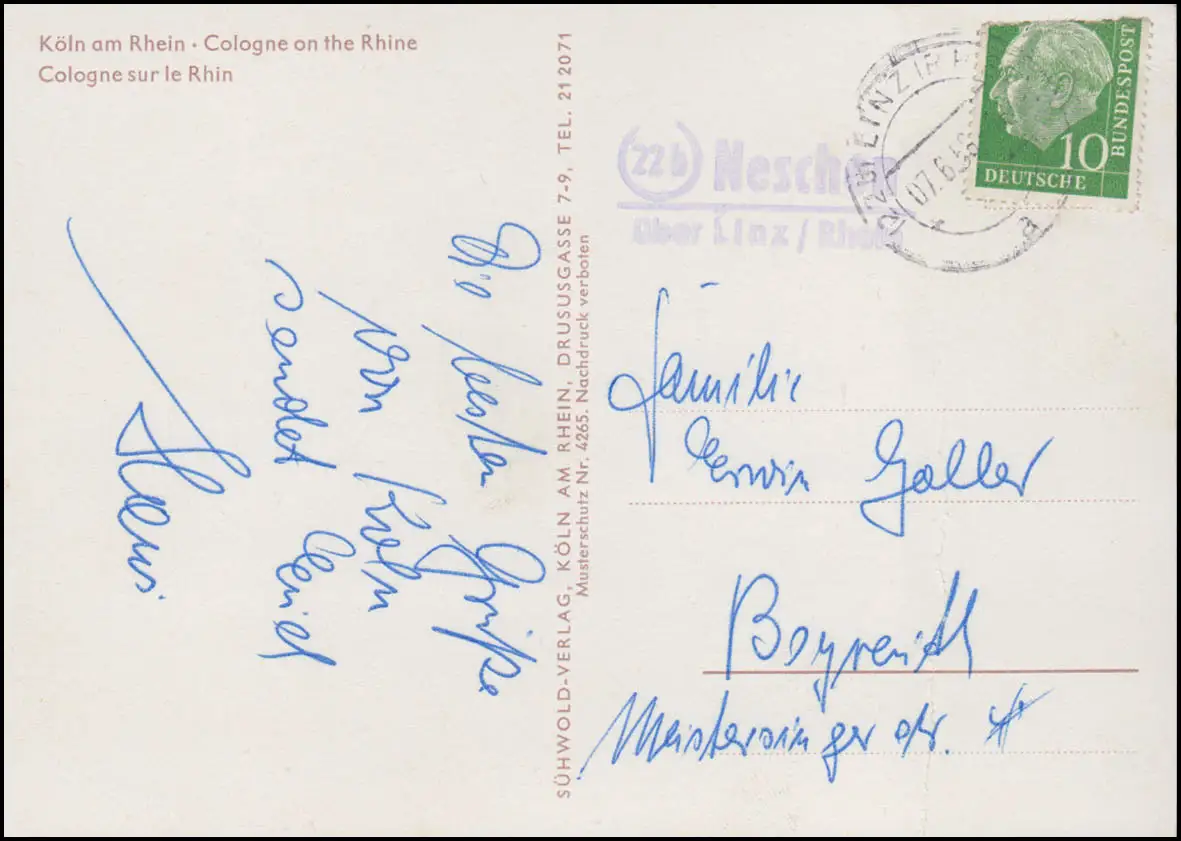 Köln am Rhein · Cologne on the Rhine
Cologne sur le Rhin
Die besten Grüße
von Köln
sendet
SÜHWOLD-VERLAG, KÖLN AM RHEIN, DRUSUSGASSE 7-9, TEL. 21 2071
Musterschutz Nr. 4265. Nachdruck verboten
22b Neschen
über Linz / Rhein
LINZ
07.6.
a
10
DEUTSCHE
BUNDESPOST
Familie
Erwin Galler
Bayreuth
Meistersinger